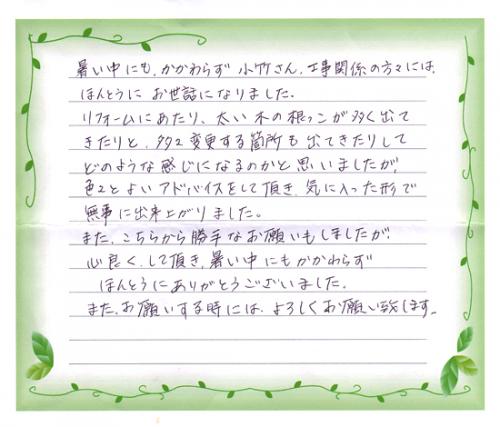 暑い中にも、かかわらず 小竹さん、工事関係の方々には、
ほんとうに お世話になりました。
リフォームにあたり、太い木の根っこが多く出て
きたりと、多々変更する箇所も出てきたりして
どのような感じになるのかと思いましたが、
色々とよいアドバイスをして頂き、気に入った形で
無事に出来上がりました。
また、こちらから勝手なお願いもしましたが
心良く、して頂き、暑い中にもかかわらず
ほんとうにありがとうございました。
また、お願いする時には、よろしくお願い致します。